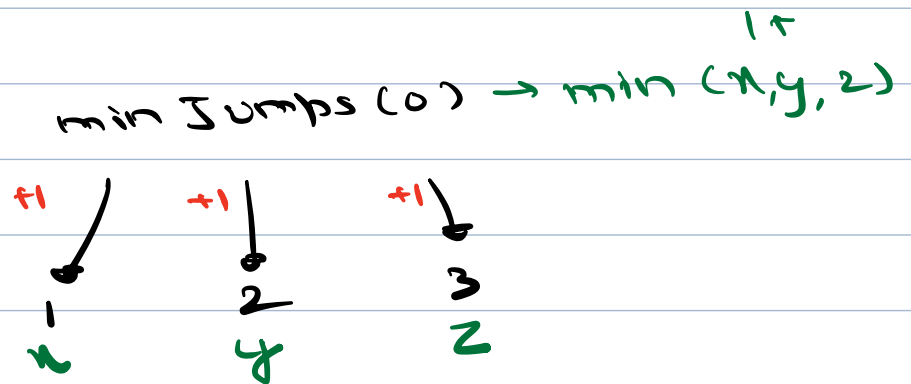 1+
min Jumps(0) → min (x,y,z)
+1 +1 +1
1 2 3
x y z